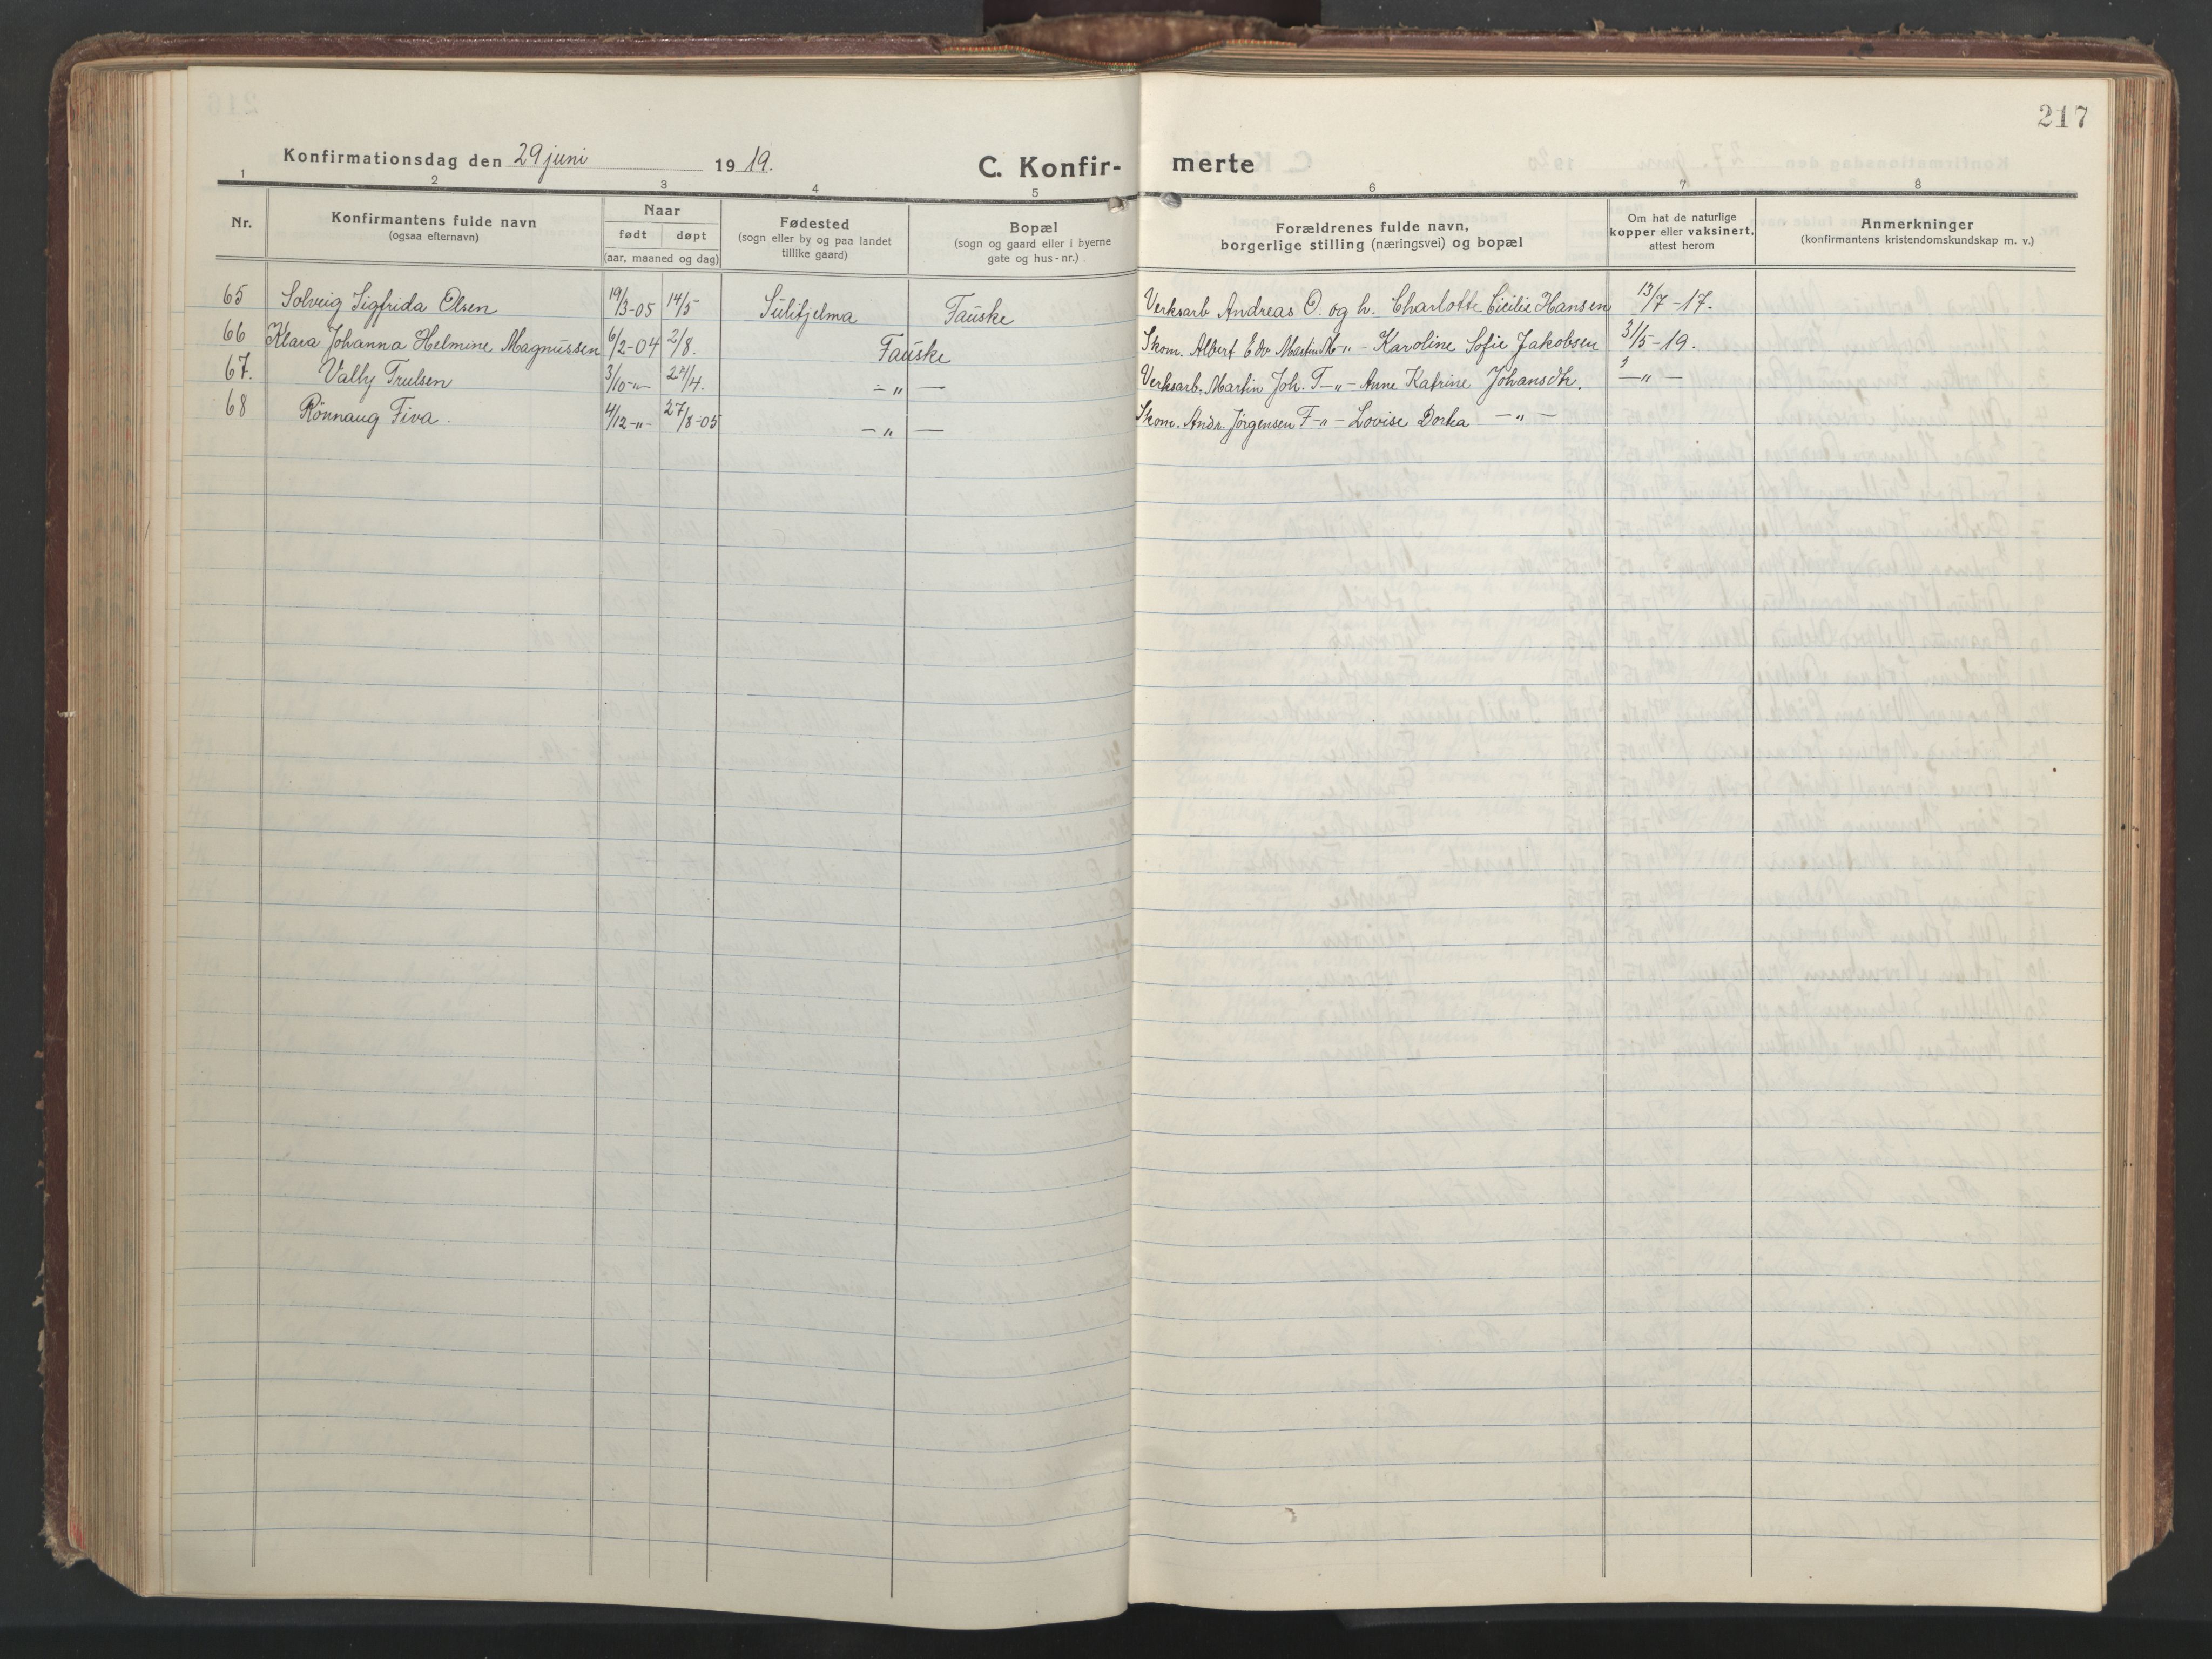 217
Konfirmationsdag den 29 juni 1919. C. Konfir- merte
1 2 3 4 5 6 7 8
Nr. Konfirmantens fulde navn (ogsaa efternavn) Naar født døpt (aar, maaned og dag) Fødested (sogn eller by og paa landet tillike gaard) Bopæl (sogn og gaard eller i byerne gate og hus-nr.) Forældrenes fulde navn, borgerlige stilling (næringsvei) og bopæl Om hat de naturlige kopper eller vaksinert, attest herom Anmerkninger (konfirmantens kristendomskundskap m. v.)
65 Solveig Sigfrida Olsen 19/3-05 14/5 Sulitjelma Fauske Verksarb Andreas O. og h. Charlotte Cicilie Hansen 13/7-17.
66 Klara Johanna Helmine Magnussen 6/2-04 2/8. Fauske Skom. Albert Edv. Martin M-"- Karoline Sofie Jakobsen 31/5-19.
67. Vally Trulsen 3/10-"- 24/4. -"- Verksarb. Martin Joh. T-"- Anne Katrine Johansdtr. -"-
68 Rönnaug Fiva. 4/12-"- 27/8-05 -"- Skom. Andr. Jörgensen F-"- Lovise Dorka -"-